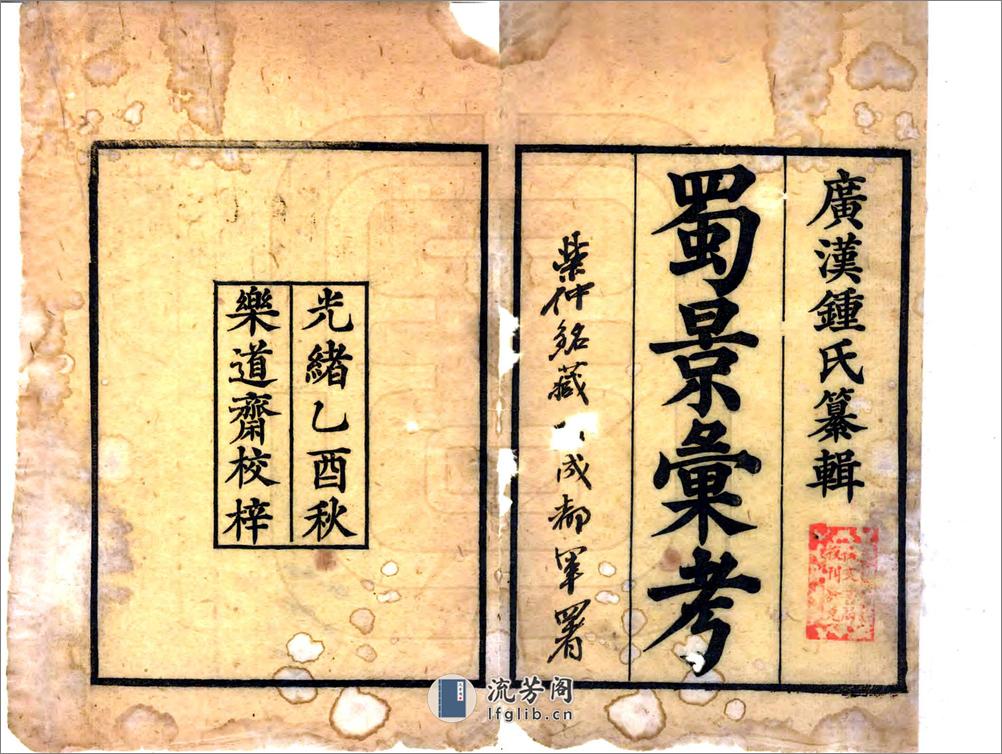 廣漢鍾氏纂輯
蜀景彙考
仲銘藏 成都軍署
光緒乙酉秋
樂道齋校梓
流芳阁
lfglib.cn